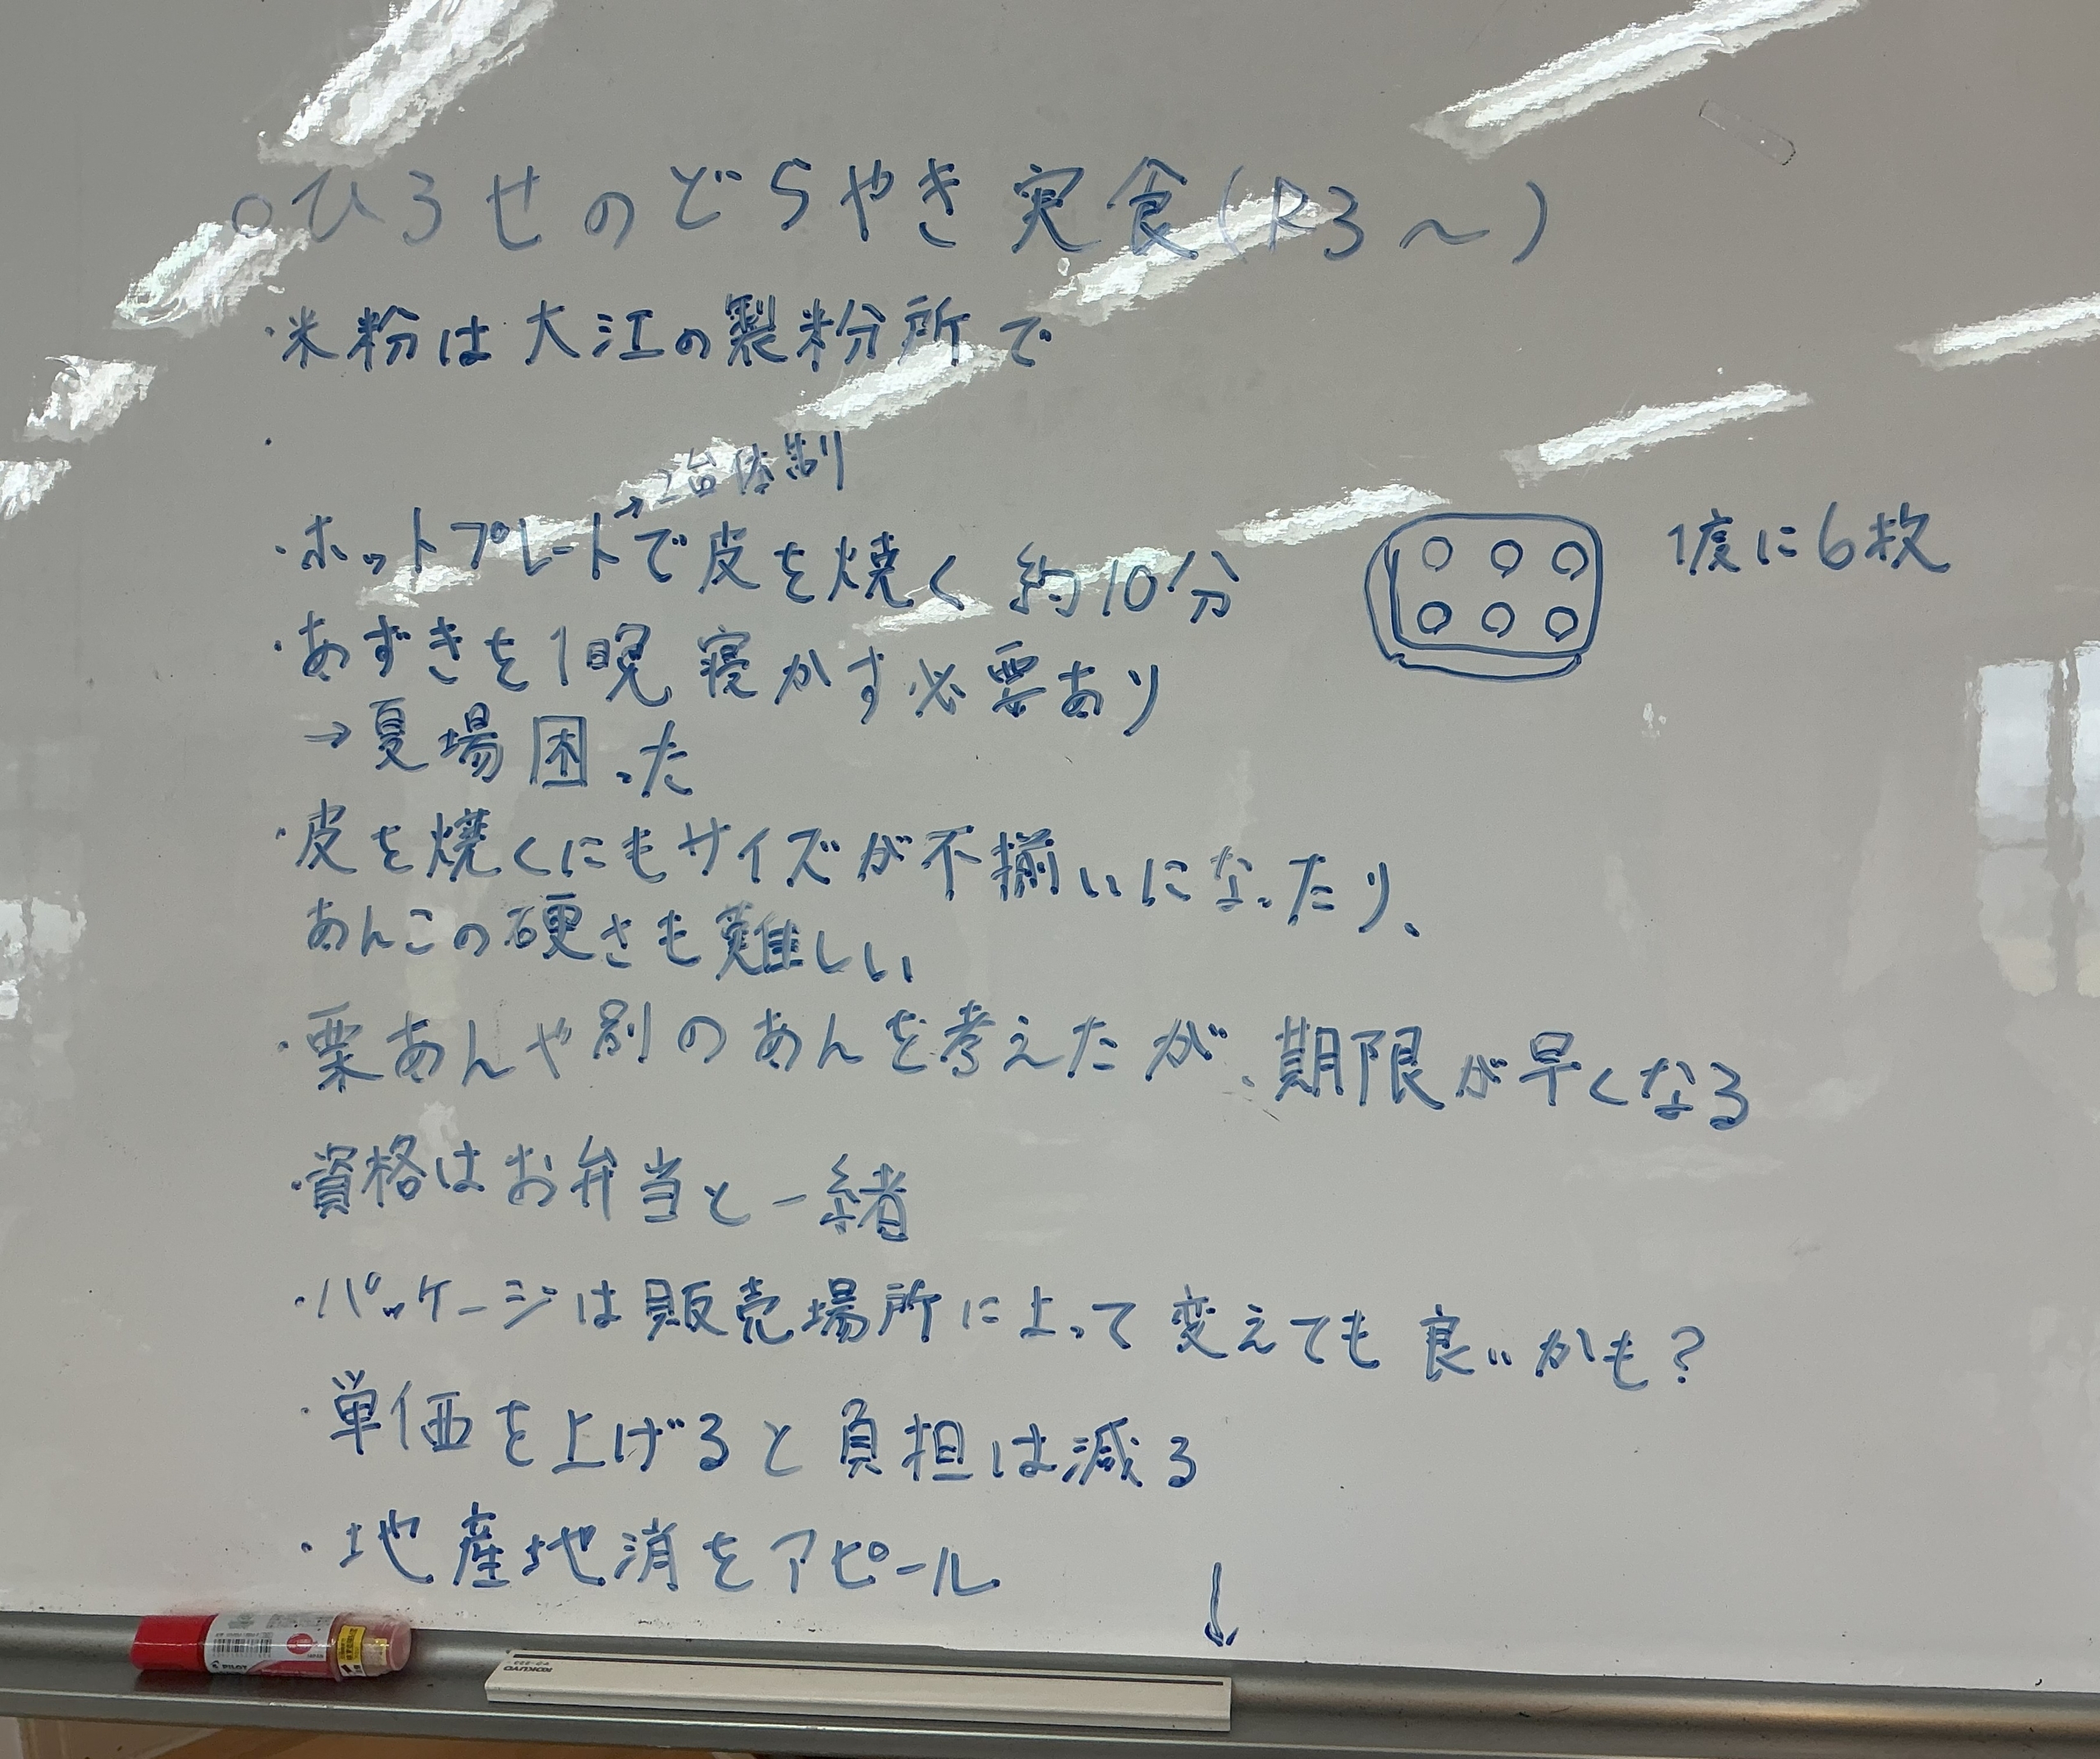 ○ひろせのどらやき実食(R3～)
・米粉は大江の製粉所で
・
→2台体制
・ホットプレートで皮を焼く 約10分
1度に6枚
・あずきを1晩寝かす必要あり
→夏場困った
・皮を焼くにもサイズが不揃いになったり、
あんこの硬さも難しい
・栗あんや別のあんを考えたが、期限が早くなる
・資格はお弁当と一緒
・パッケージは販売場所によって変えても良いかも?
・単価を上げると負担は減る
・地産地消をアピール
↓
PILOT
KOKUYO